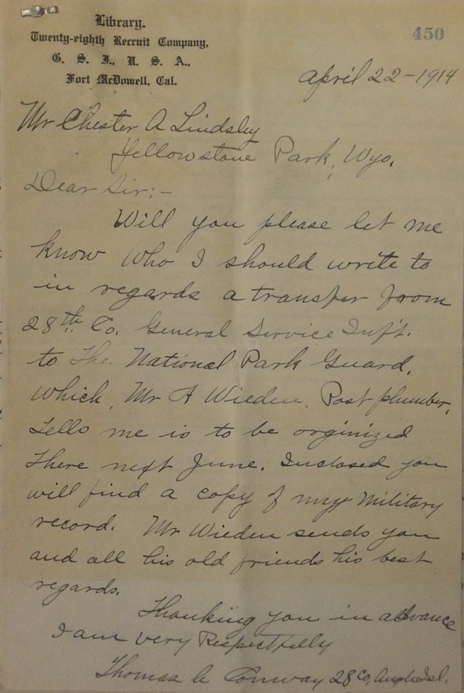 Library.
Twenty-eighth Recruit Company,
G. S. I., U. S. A.,
Fort McDowell, Cal.
450
April 22-1914
Mr Chester A Lindsley
Yellowstone Park, Wyo.
Dear Sir:-
Will you please let me
know who I should write to
in regards a transfer from
28th Co. General Service Inf't.
to The National Park Guard,
which, Mr A Wieden, Post plumber,
tells me is to be orginized
there next June. Inclosed you
will find a copy of my Military
record. Mr Wieden sends you
and all his old friends his best
regards.
Thanking you in advance
I am very Respectfully
Thomas Conway 28 Co, Angel Isl.